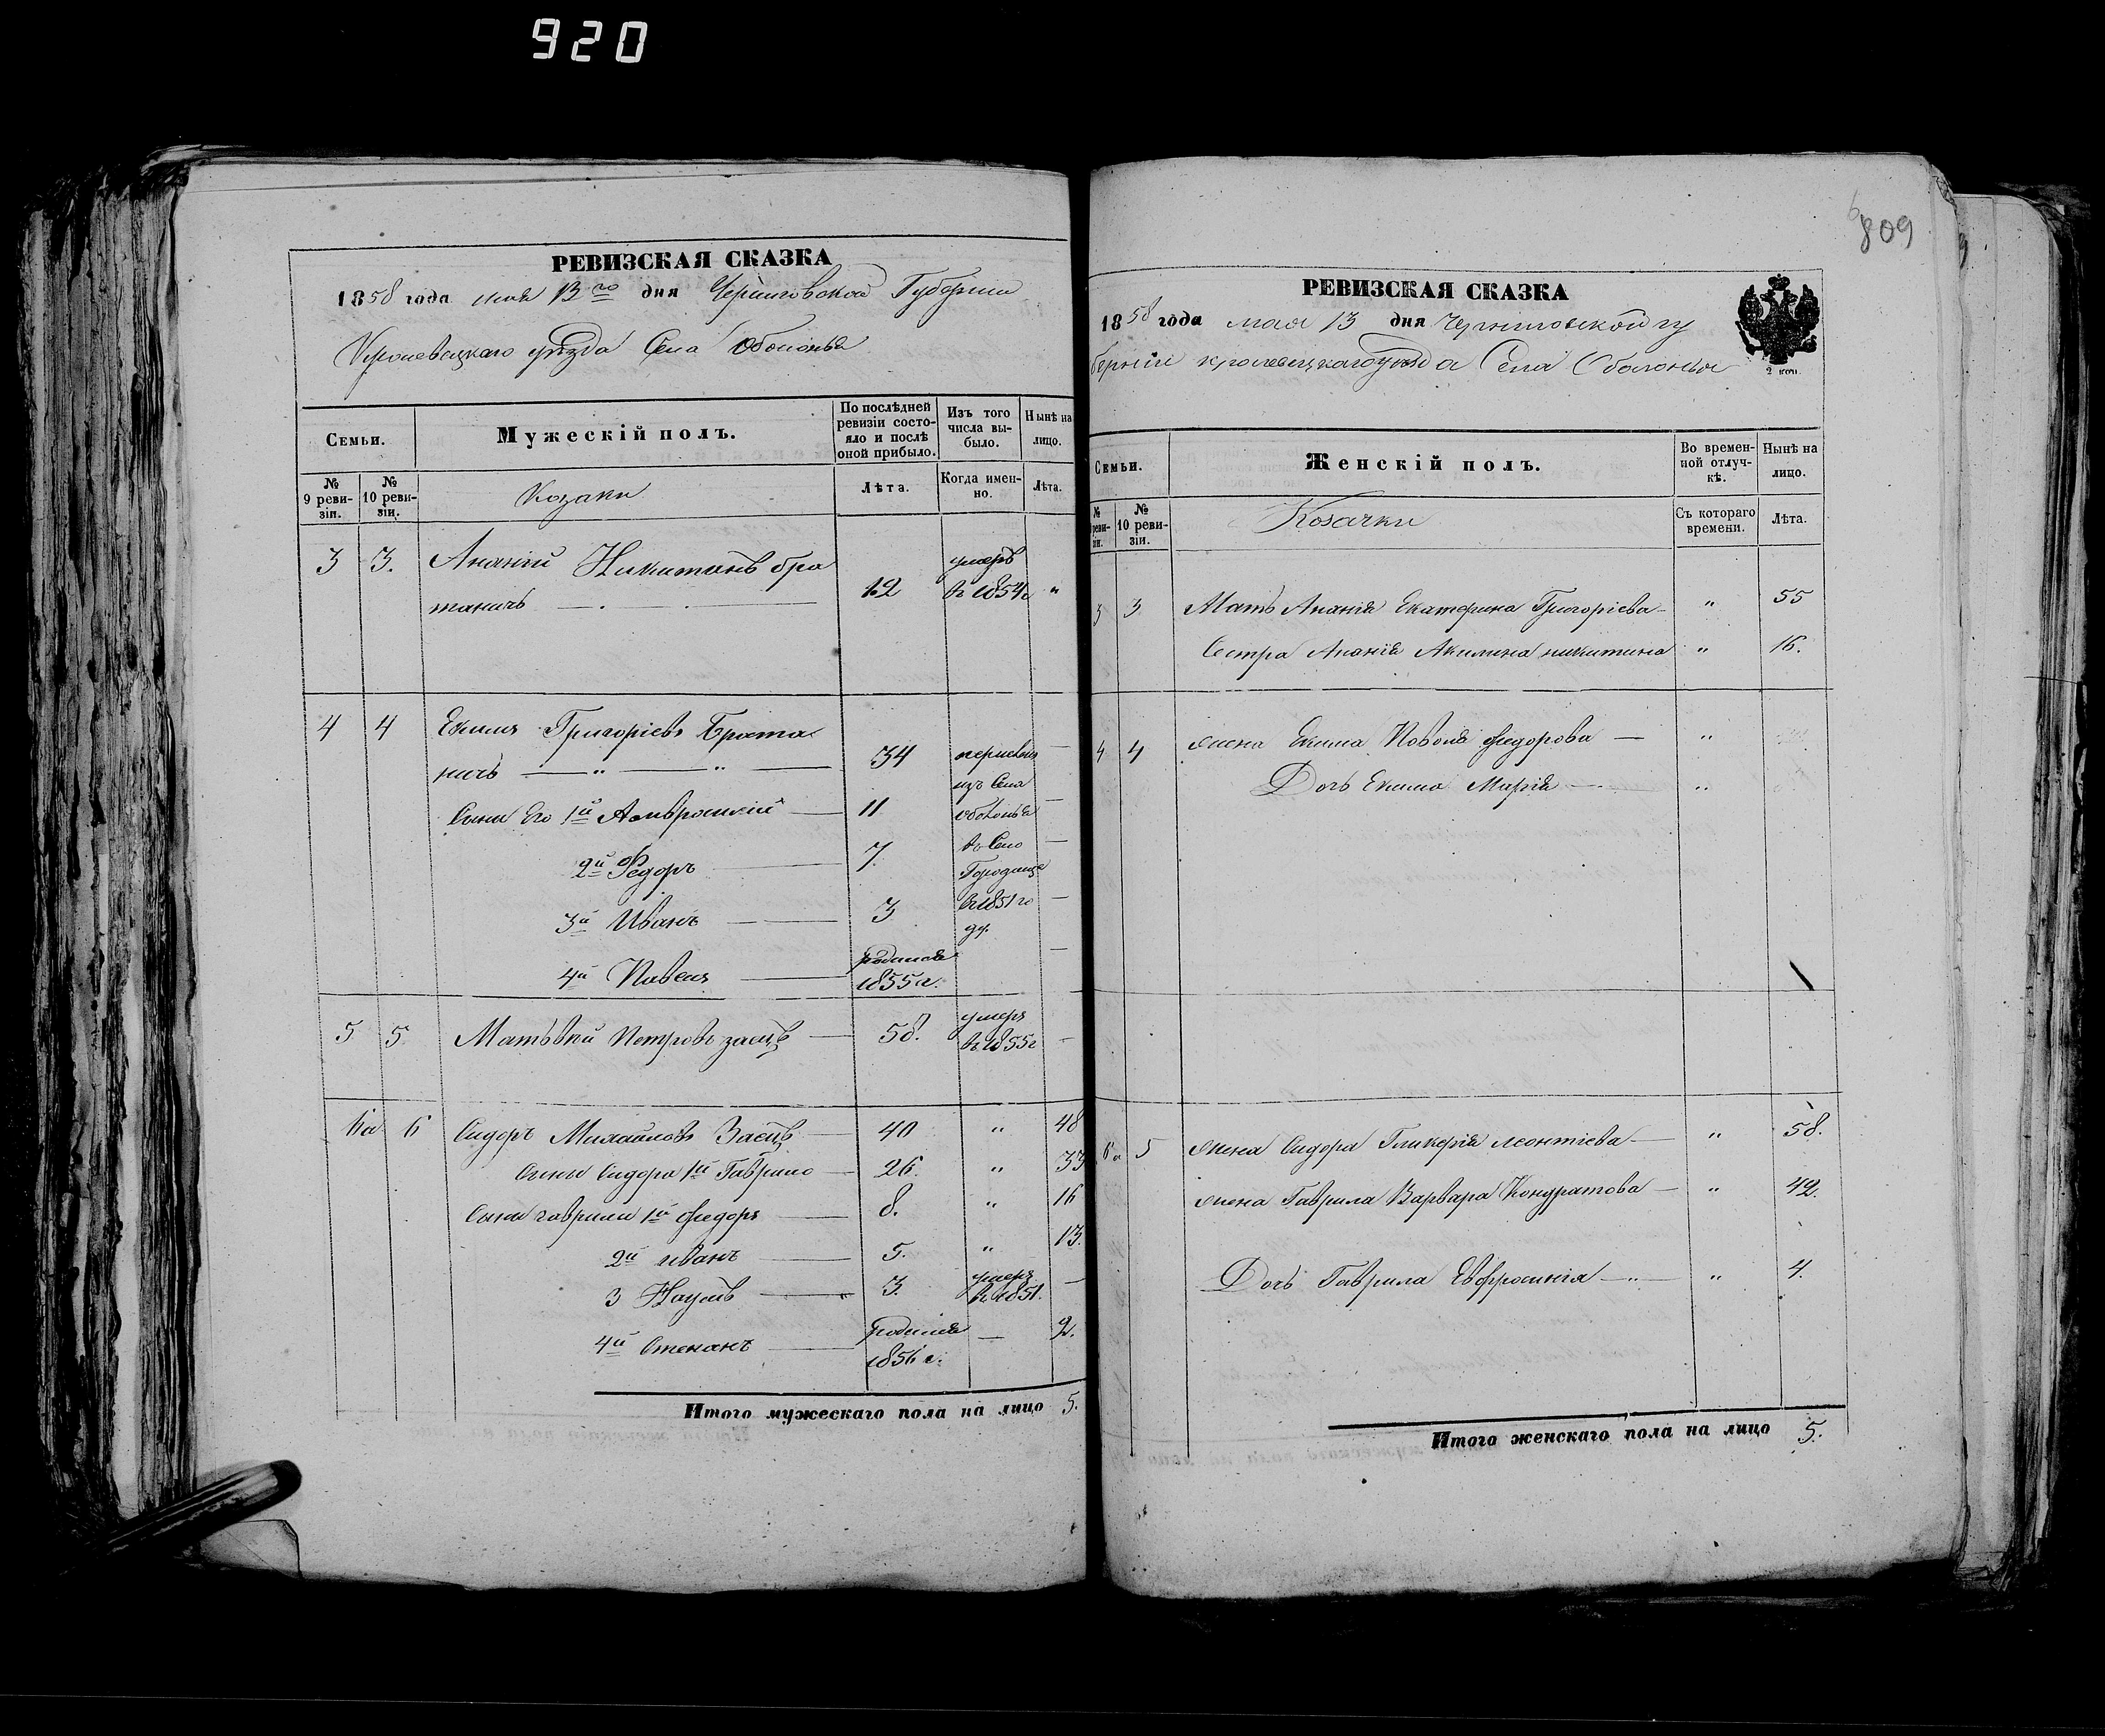 920
РЕВИЗСКАЯ СКАЗКА
1858 года мая 13го дня Черниговской Губернии
Кролевецкаго уѣзда Села Оболонья
Семьи.
Мужескій полъ.
По послѣдней ревизіи состояло и послѣ оной прибыло.
Изъ того числа выбыло.
Нынѣ на лицо.
№ 9 ревизіи.
№ 10 ревизіи.
Козаки
Лѣта.
Когда именно.
Лѣта.
3 3. Ананій Никитинъ бра
таничъ 12 умеръ в 1854г "
4 4 Екимъ Григоріевъ Брата
ничъ 34 перешел
изъ Села
Сыны Его 1й Амвросій 11 Оболонья
2й Федоръ 7. въ Село
Городище
3й Иванъ 3 в 1851 го
ду.
4й Павелъ родился
1855г.
5 5. Матвѣй Петровъ заецъ 58. умеръ
в 1855г
6а 6 Сидоръ Михайловъ Заецъ 40 " 48
Сыны Сидора 1й Гаврило 26. " 33
Сыны гаврила 1й федоръ 8. " 16
2й иванъ 5. " 13.
3 Наумъ 3. умеръ
в 1851.
4й Степанъ родился 2.
1856г.
Итого мужескаго пола на лицо 5.
809
РЕВИЗСКАЯ СКАЗКА
1858 года мая 13 дня Черниговской гу
берніи кролевецкаго уезда Села Оболонья
2 коп.
Семьи.
Женскій полъ.
Во временной отлучкѣ.
Нынѣ на лицо.
№ ревизіи.
№ 10 ревизіи.
Козачки
Съ котораго времени.
Лѣта.
3 3 Мать Ананія Екатерина Григоріева " 55
Сестра Ананія Акилина никитина " 16.
4 4 жена Екима федорова "
Дочь Екима Марія "
6а 5 жена Сидора Гликерія леонтіева " 58.
жена Гаврила Варвара Кондратова " 42.
Дочь Гаврила Евфросинія " 4.
Итого женскаго пола на лицо 5.